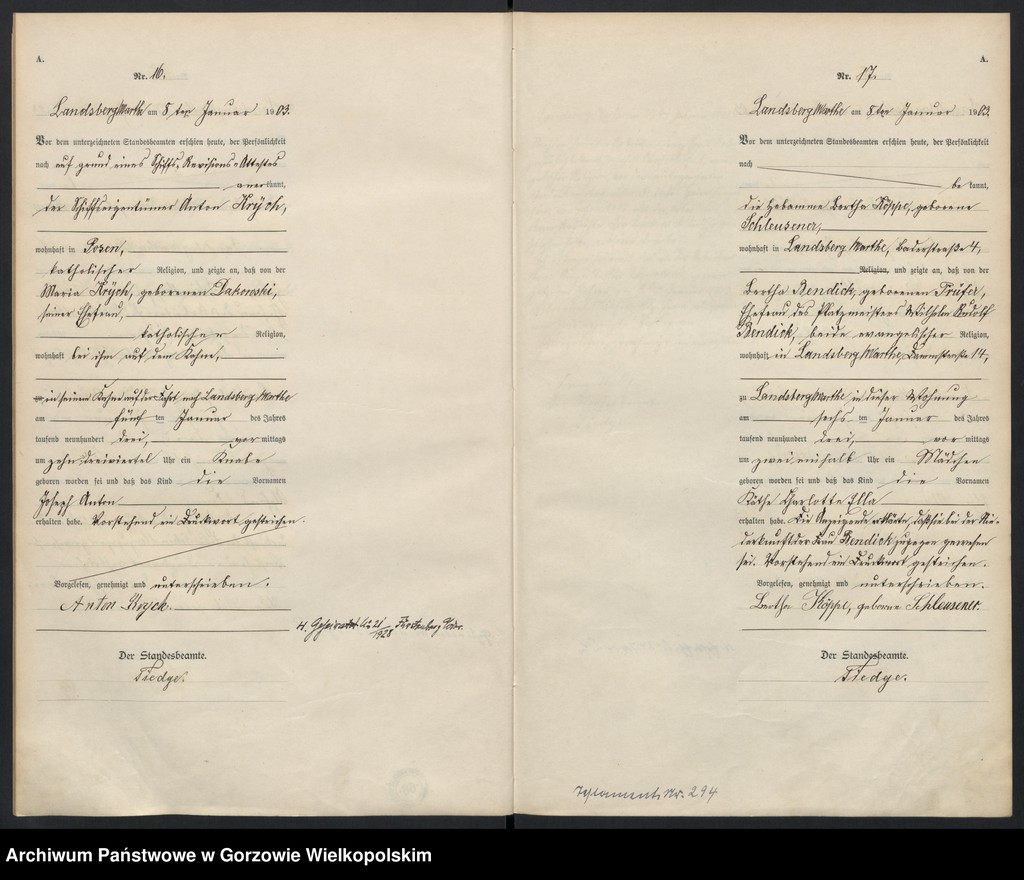 A.
Nr. 16.
Landsberg Warthe am 8ten Januar 1903.
Vor dem unterzeichneten Standesbeamten erschien heute, der Persönlichkeit
nach auf grund eines Schiffs-Revisions-Attestes
anerkannt,
der Schiffseigentümer Anton Krÿch,
wohnhaft in Posen,
katholischer Religion, und zeigte an, daß von der
Maria Krÿch, geborenen Dakowski,
seiner Ehefrau,
katholischer Religion,
wohnhaft bei ihm auf dem Kahne,
in seinem Kahne auf der Fahrt nach Landsberg Warthe
am fünften Januar des Jahres
tausend neunhundert drei, vor mittags
um zehn dreiviertel Uhr ein Knabe
geboren worden sei und daß das Kind die Vornamen
Joseph Anton
erhalten habe. Vorstehend ein Druckwort gestrichen.
Vorgelesen, genehmigt und unterschrieben.
Anton Krych.
H. Geheiratet 21/1928 Fürstenberg Oder.
Der Standesbeamte.
Tiedge.
A.
Nr. 17.
Landsberg Warthe am 8ten Januar 1903.
Vor dem unterzeichneten Standesbeamten erschien heute, der Persönlichkeit
nach
bekannt,
die Hebamme Bertha Köppe, geborene
Schleusener,
wohnhaft in Landsberg Warthe, Baderstraße 4,
Religion, und zeigte an, daß von der
Bertha Bendick, geborenen Prüfer,
Ehefrau des Platzmeisters Wilhelm Rudolf
Bendick, beide evangelischer Religion,
wohnhaft in Landsberg Warthe, Dammstraße 14,
zu Landsberg Warthe in dieser Wohnung
am sechsten Januar des Jahres
tausend neunhundert drei, vor mittags
um zwei einhalb Uhr ein Mädchen
geboren worden sei und daß das Kind die Vornamen
Käthe Charlotte Ella
erhalten habe. Die Anzeigende erklärte, daß sie bei der Nie-
derkunft der Frau Bendick zugegen gewesen
sei. Vorstehend ein Druckwort gestrichen.
Vorgelesen, genehmigt und unterschrieben.
Bertha Köppe, geborne Schleusener
Der Standesbeamte.
Tiedge.
Nr. 294
Archiwum Państwowe w Gorzowie Wielkopolskim